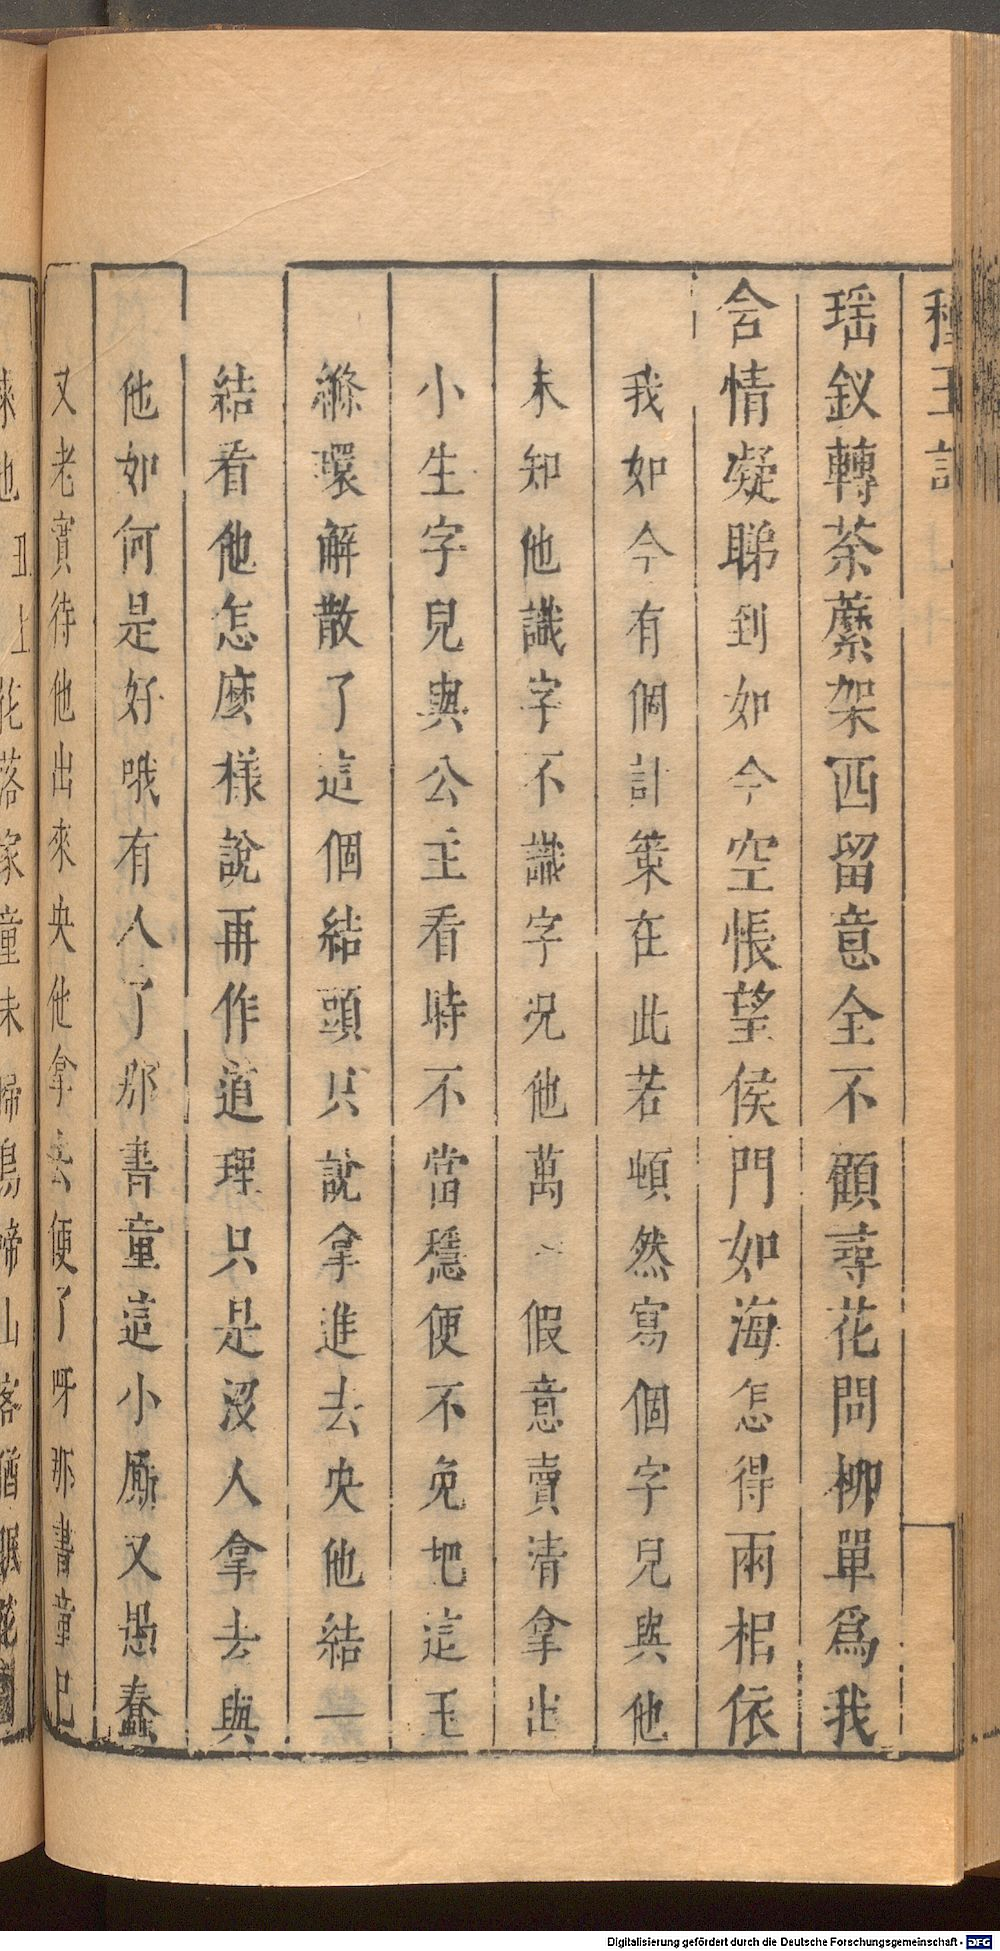 種玉記
瑶釵轉荼蘼架西留意全不顧尋花問柳單爲我
含情凝睇到如今空悵望侯門如海怎得兩相依
我如今有個計策在此若頓然寫個字兒與他
未知他識字不識字况他萬一假意賣清拿出
小生字兒與公主看時不當穩便不免把這玉
縧環解散了這個結頭只說拿進去央他結一
結看他怎麽樣說再作道理只是没人拿去與
他如何是好哦有人了那書童這小厮又愚蠢
又老實待他出來央他拿去便了呀那書童已
來也丑上花落家童未掃鳥啼山客猶眠花
Digitalisierung gefördert durch die Deutsche Forschungsgemeinschaft - DFG